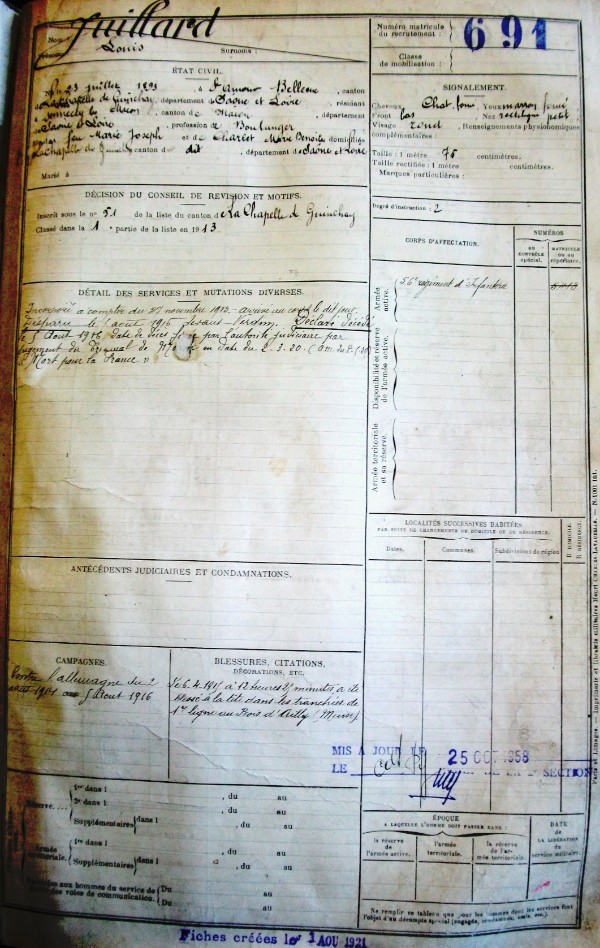 Nom : Juillard
Prénoms : Louis Surnoms :
Numéro matricule du recrutement : 691
Classe de mobilisation :
ÉTAT CIVIL.
Né le 23 juillet 1893, à St Amour Bellevue, canton
de La Chapelle de Guinchay, département de Saône et Loire, résidant
canton de Macon, département
Saône et Loire, profession de Boulanger
fils de feu Marie Joseph et de Charlet Marie Benoite domiciliés
La Chapelle de Guinchay canton de dit, département de Saône et Loire
Marié à
SIGNALEMENT.
Cheveux Chat. foncé Yeux marron foncé
Front bas Nez rectiligne petit
Visage rond Renseignements physionomiques
complémentaires :
Taille : 1 mètre 75 centimètres.
Taille rectifiée : 1 mètre centimètres.
Marques particulières :
DÉCISION DU CONSEIL DE RÉVISION ET MOTIFS.
Inscrit sous le n° 51 de la liste du canton de La Chapelle de Guinchay
Classé dans la 1e partie de la liste en 1913.
Degré d'instruction : 2
DÉTAIL DES SERVICES ET MUTATIONS DIVERSES.
Incorporé à compter du 27 novembre 1913 arrivé au corps le dit jour
Disparu le 5 août 1916 devant Verdun. Déclaré décédé
le 5 Août 1916 date de décès fixée par l'autorité judiciaire par
jugement du tribunal de en date du 2.3.20.
« Mort pour la France »
CORPS D'AFFECTATION.
NUMÉROS
AU CONTRÔLE spécial.
MATRICULE OU AU répertoire.
Armée active.
56e régiment d'Infanterie
Disponibilité et réserve de l'armée active.
Armée territoriale et sa réserve.
LOCALITÉS SUCCESSIVES HABITÉES
PAR SUITE DE CHANGEMENTS DE DOMICILE OU DE RÉSIDENCE.
Dates. Communes. Subdivisions de région D DOMICILE. R RÉSIDENCE.
ANTÉCÉDENTS JUDICIAIRES ET CONDAMNATIONS.
CAMPAGNES.
Contre l'allemagne du 2
août 1914 au 5 août 1916
BLESSURES, CITATIONS,
DÉCORATIONS, ETC.
Le 6.4.1915 à 12 heures minutes, a été
blessé à la tête dans les tranchées de
1re ligne au Bois d'Ailly (Meuse)
MIS A JOUR LE 25 OCT 1958
LE DE LA SECTION
Réserve....
1er dans l , du au
2e dans l , du au
Supplémentaires dans l , du au
Armée territoriale.
1re dans l , du au
Supplémentaires dans l , du au
aux hommes du service de
des voies de communication.
Du au
Du au
ÉPOQUE
A LAQUELLE L'HOMME DOIT PASSER DANS :
la réserve de l'armée active.
l'armée territoriale.
la réserve de l'armée territoriale.
DATE DE LA LIBÉRATION du service militaire.
Ne remplir ce tableau que pour les hommes dont les services font
l'objet d'un décompte spécial (engagés, omis, etc.)
Fiches créées le 3 AOU 1921
Paris et Limoges. — Imprimerie et librairie militaires Henri CHARLES-LAVAUZELLE.